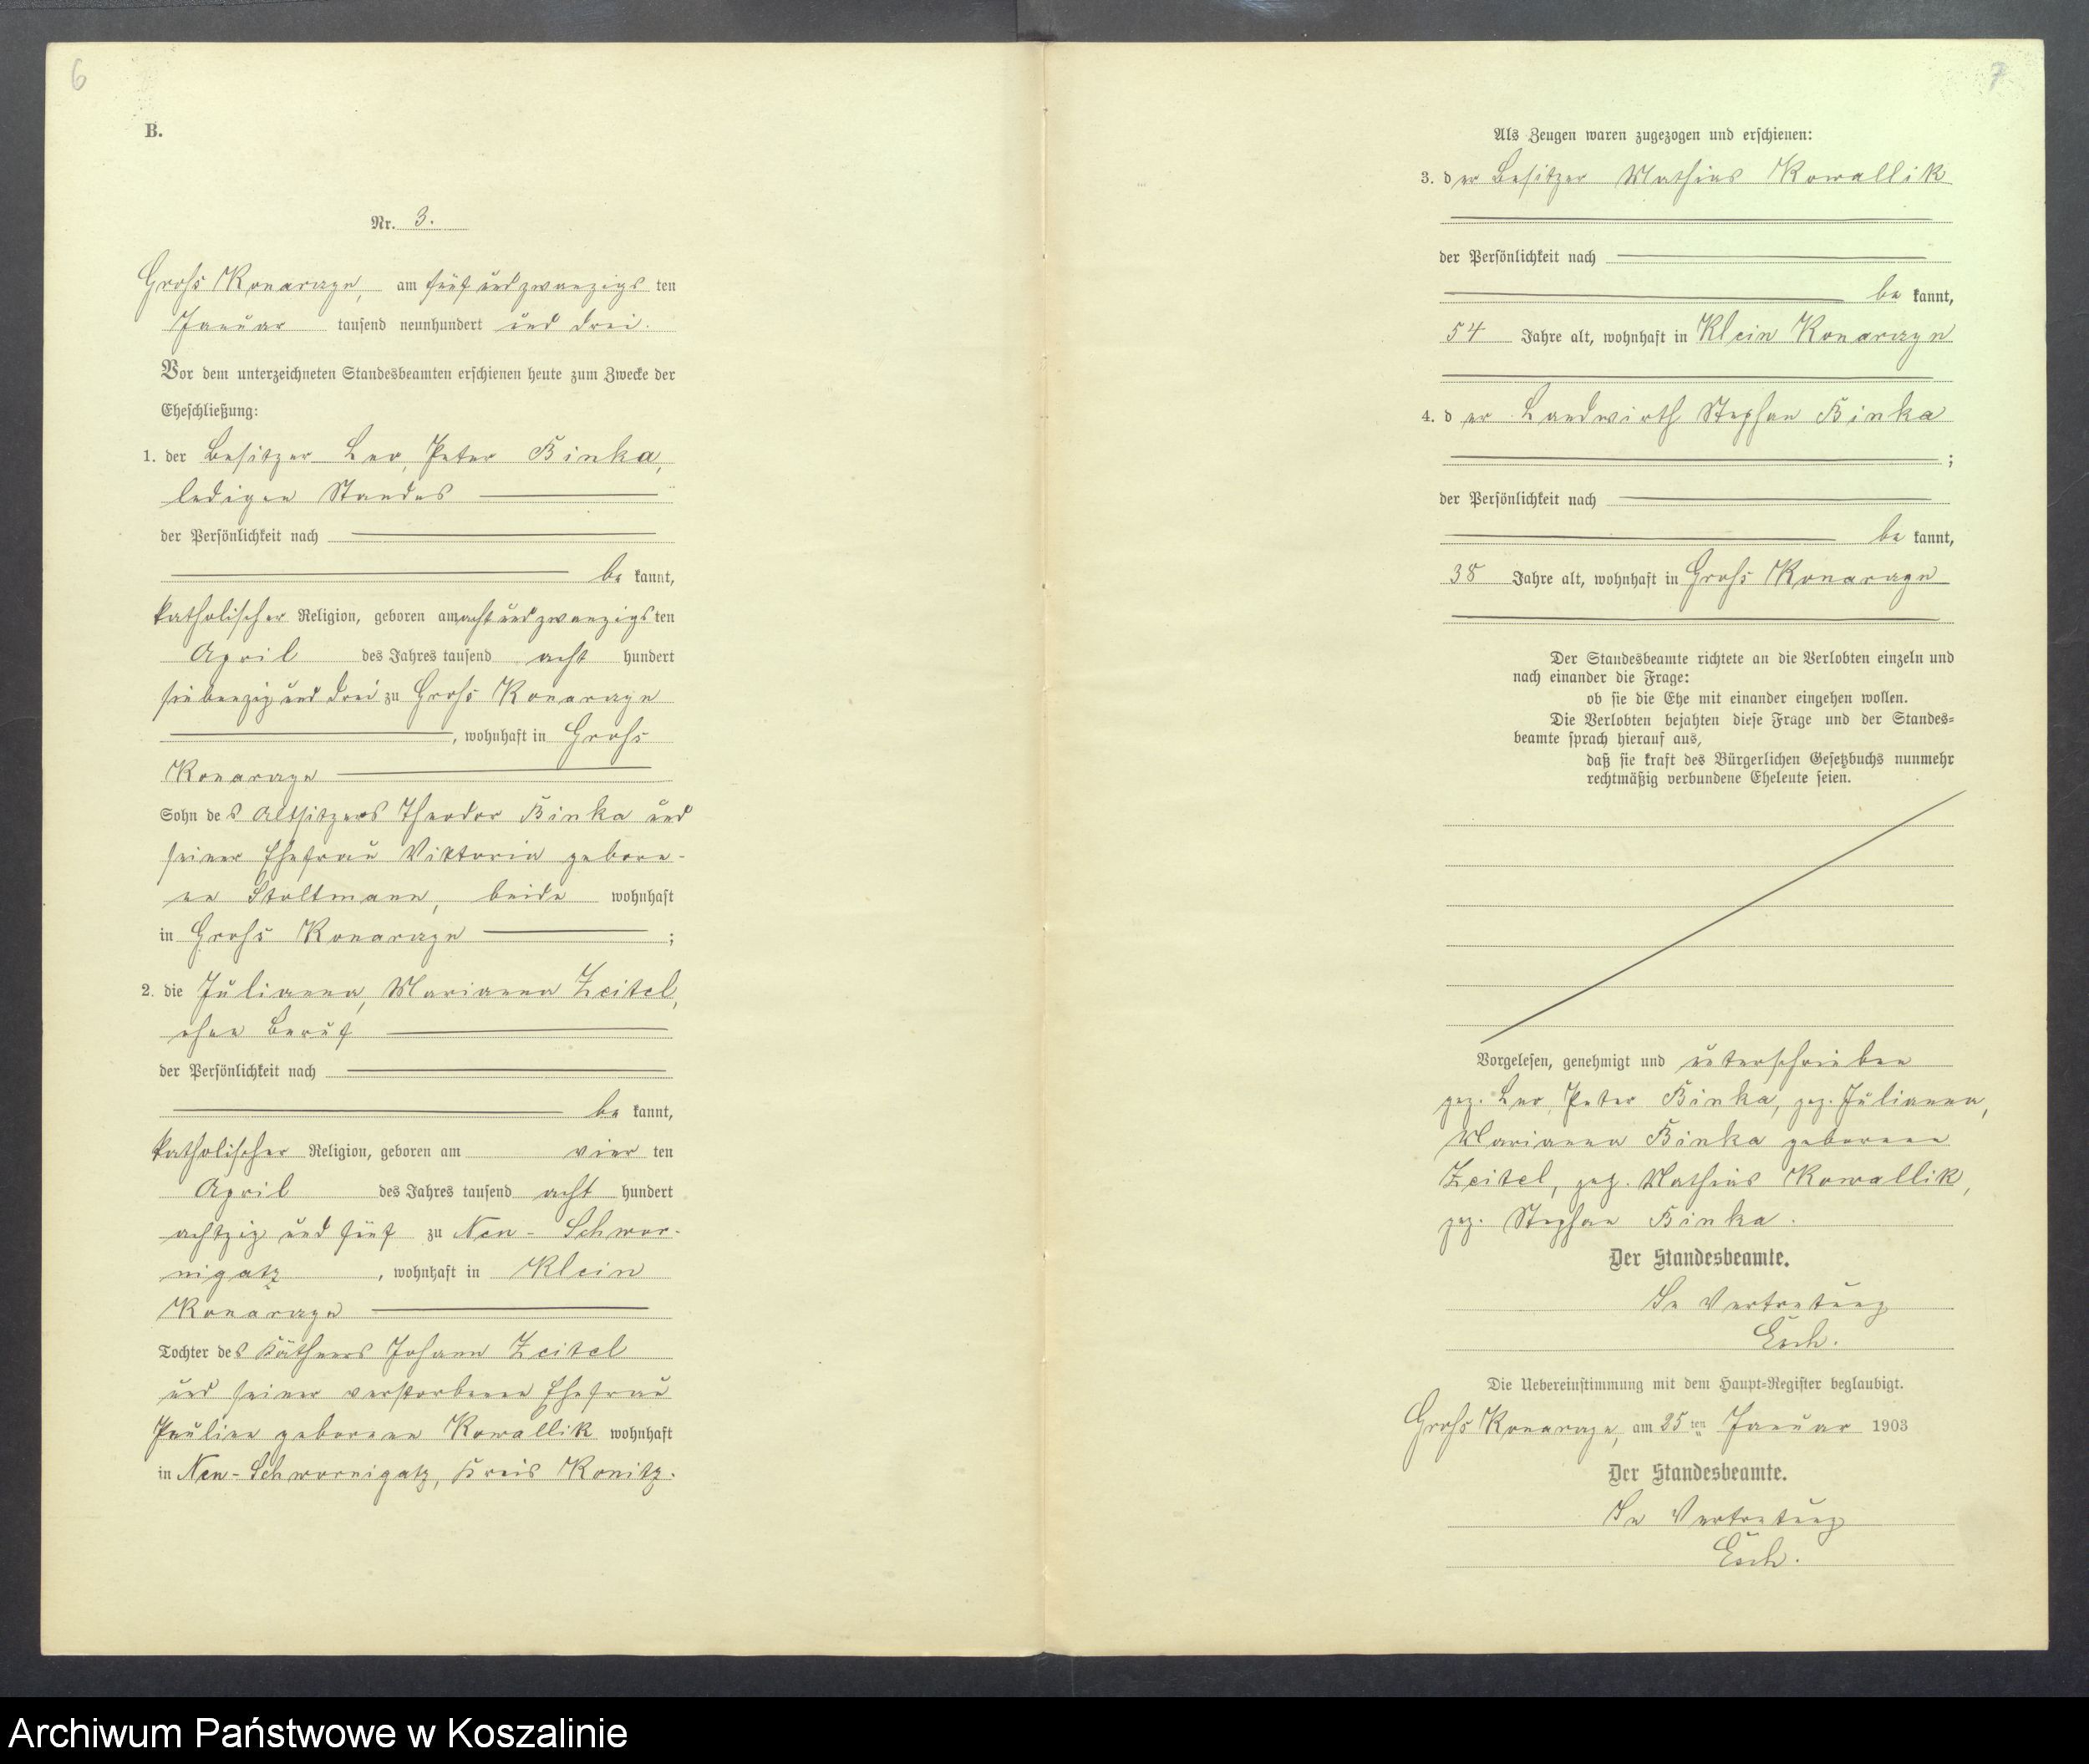 6
B.
Nr. 3.
Gross Konarczyn, am fünf und zwanzigs ten
Januar tausend neunhundert und drei.
Vor dem unterzeichneten Standesbeamten erschienen heute zum Zwecke der
Eheschließung:
1. der Besitzer Leo, Peter Binka,
ledigen Standes
der Persönlichkeit nach
be kannt,
katholischer Religion, geboren am acht und zwanzigs ten
April des Jahres tausend acht hundert
siebenzig und drei zu Gross Konarczyn
, wohnhaft in Gross
Konarczyn
Sohn des Altsitzers Theodor Binka und
seiner Ehefrau Viktoria gebore-
en Stoltmann, beide wohnhaft
in Gross Konarczyn ;
2. die Julianna, Marianna Zeitel,
ohne Beruf
der Persönlichkeit nach
be kannt,
katholischer Religion, geboren am vier ten
April des Jahres tausend acht hundert
achtzig und fünf zu Neu- Schwor-
nigatz , wohnhaft in Klein
Konarczyn
Tochter des Käthners Johann Zeitel
und seiner verstorbenen Ehefrau
Pauline geborenen Kowallik wohnhaft
in Neu-Schwornigatz, Kreis Konitz.
7
Als Zeugen waren zugezogen und erschienen:
3. der Besitzer Mathias Kowallik
der Persönlichkeit nach
be kannt,
54 Jahre alt, wohnhaft in Klein Konarczyn
4. der Landwirth Stephan Binka
;
der Persönlichkeit nach
be kannt,
38 Jahre alt, wohnhaft in Gross Konarczyn
Der Standesbeamte richtete an die Verlobten einzeln und
nach einander die Frage:
ob sie die Ehe mit einander eingehen wollen.
Die Verlobten bejahten diese Frage und der Standes-
beamte sprach hierauf aus,
daß sie kraft des Bürgerlichen Gesetzbuchs nunmehr
rechtmäßig verbundene Eheleute seien.
Vorgelesen, genehmigt und unterschrieben
gez. Leo, Peter Binka, gez. Julianna,
Marianna Binka geborene
Zeitel, gez. Mathias Kowallik,
gez. Stephan Binka.
Der Standesbeamte.
In Vertretung
Esch.
Die Uebereinstimmung mit dem Haupt-Register beglaubigt.
Gross Konarczyn, am 25 ten Januar 1903
Der Standesbeamte.
In Vertretung
Esch.
Archiwum Państwowe w Koszalinie